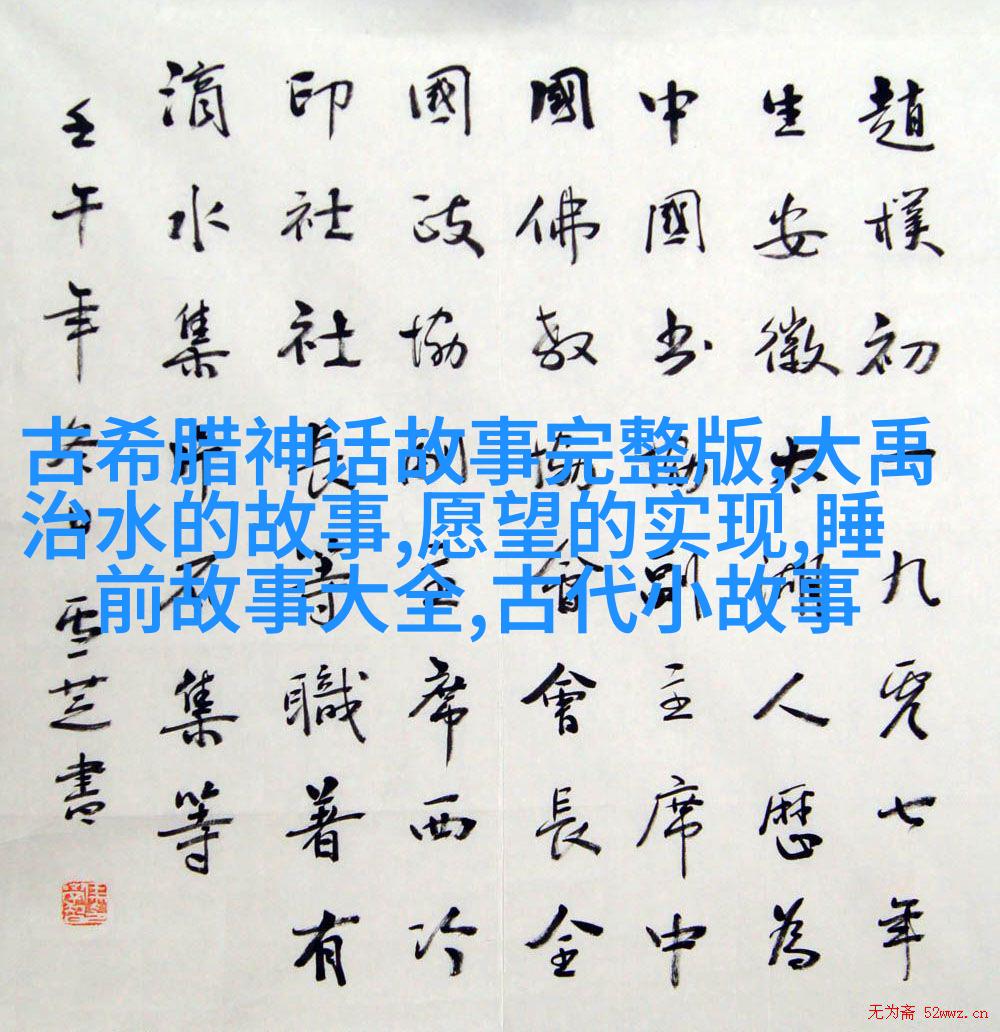 趙樸初一九零七年
生安徽太湖人歷為
中國书協副主席中
國佛教協會會長全
國政協副主席西冷
印社社長等職著有
滴水集片石集等
壬午年冬雪芝書
古希腊神话故事完整版,大禹
治水的故事,愿望的实现,睡
前故事大全,古代小故事
无为斋 52wwz.cn